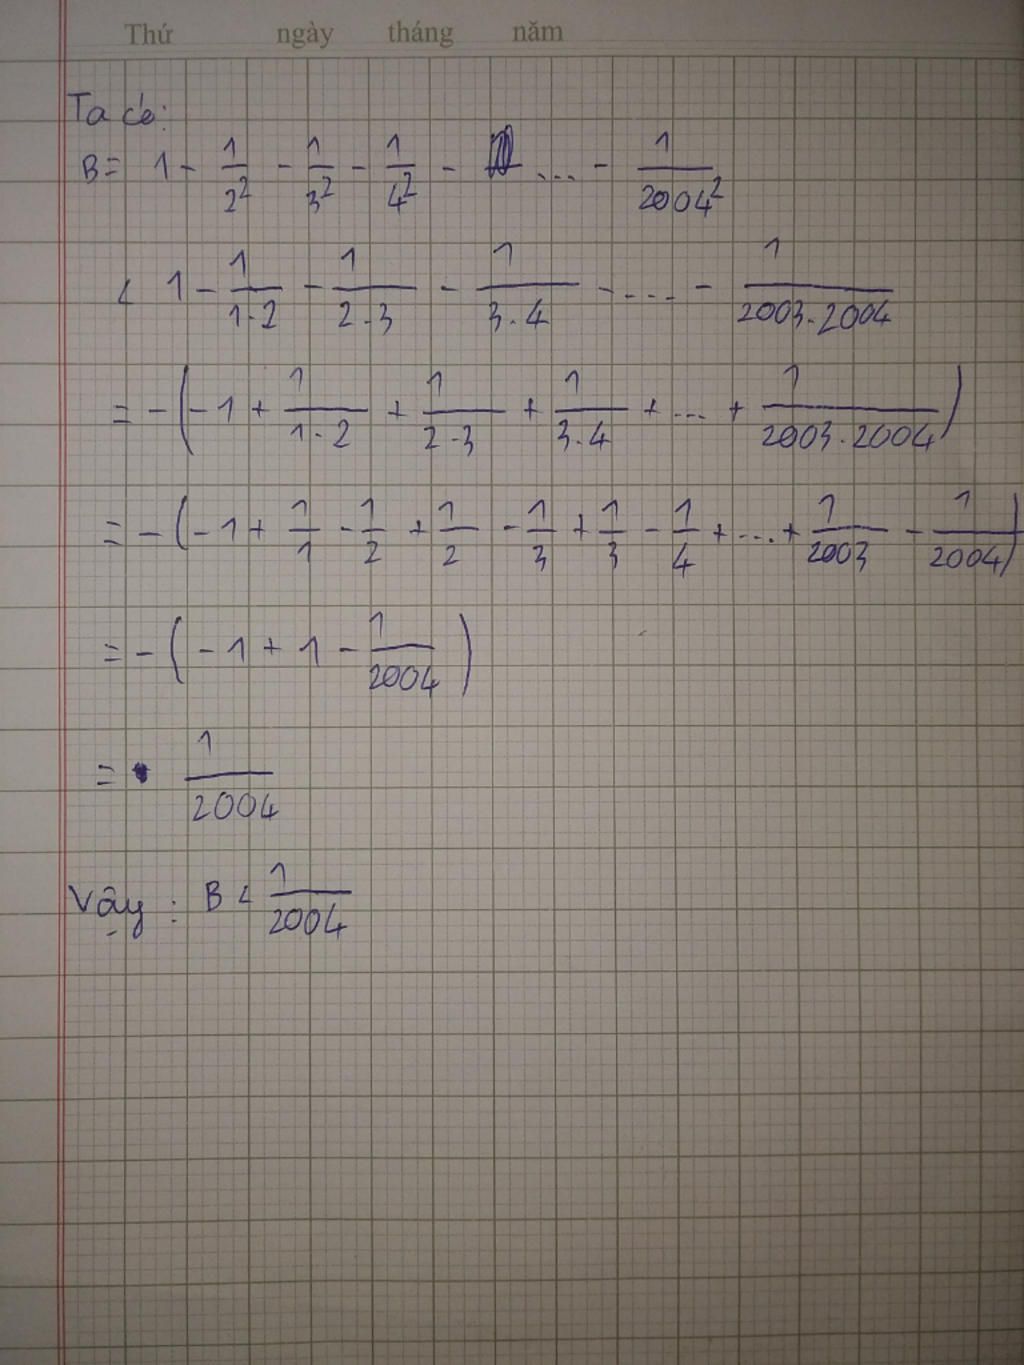 Thứ ngày tháng năm
Ta có:
B = 1 - 1/2² - 1/3² - 1/4² - ... - 1/2004²
< 1 - 1/1.2 - 1/2.3 - 1/3.4 - .... - 1/2003.2004
= - (-1 + 1/1.2 + 1/2.3 + 1/3.4 + ... + 1/2003.2004)
= - (-1 + 1/1 - 1/2 + 1/2 - 1/3 + 1/3 - 1/4 + ... + 1/2003 - 1/2004)
= - (-1 + 1 - 1/2004)
= 1/2004
Vậy : B < 1/2004